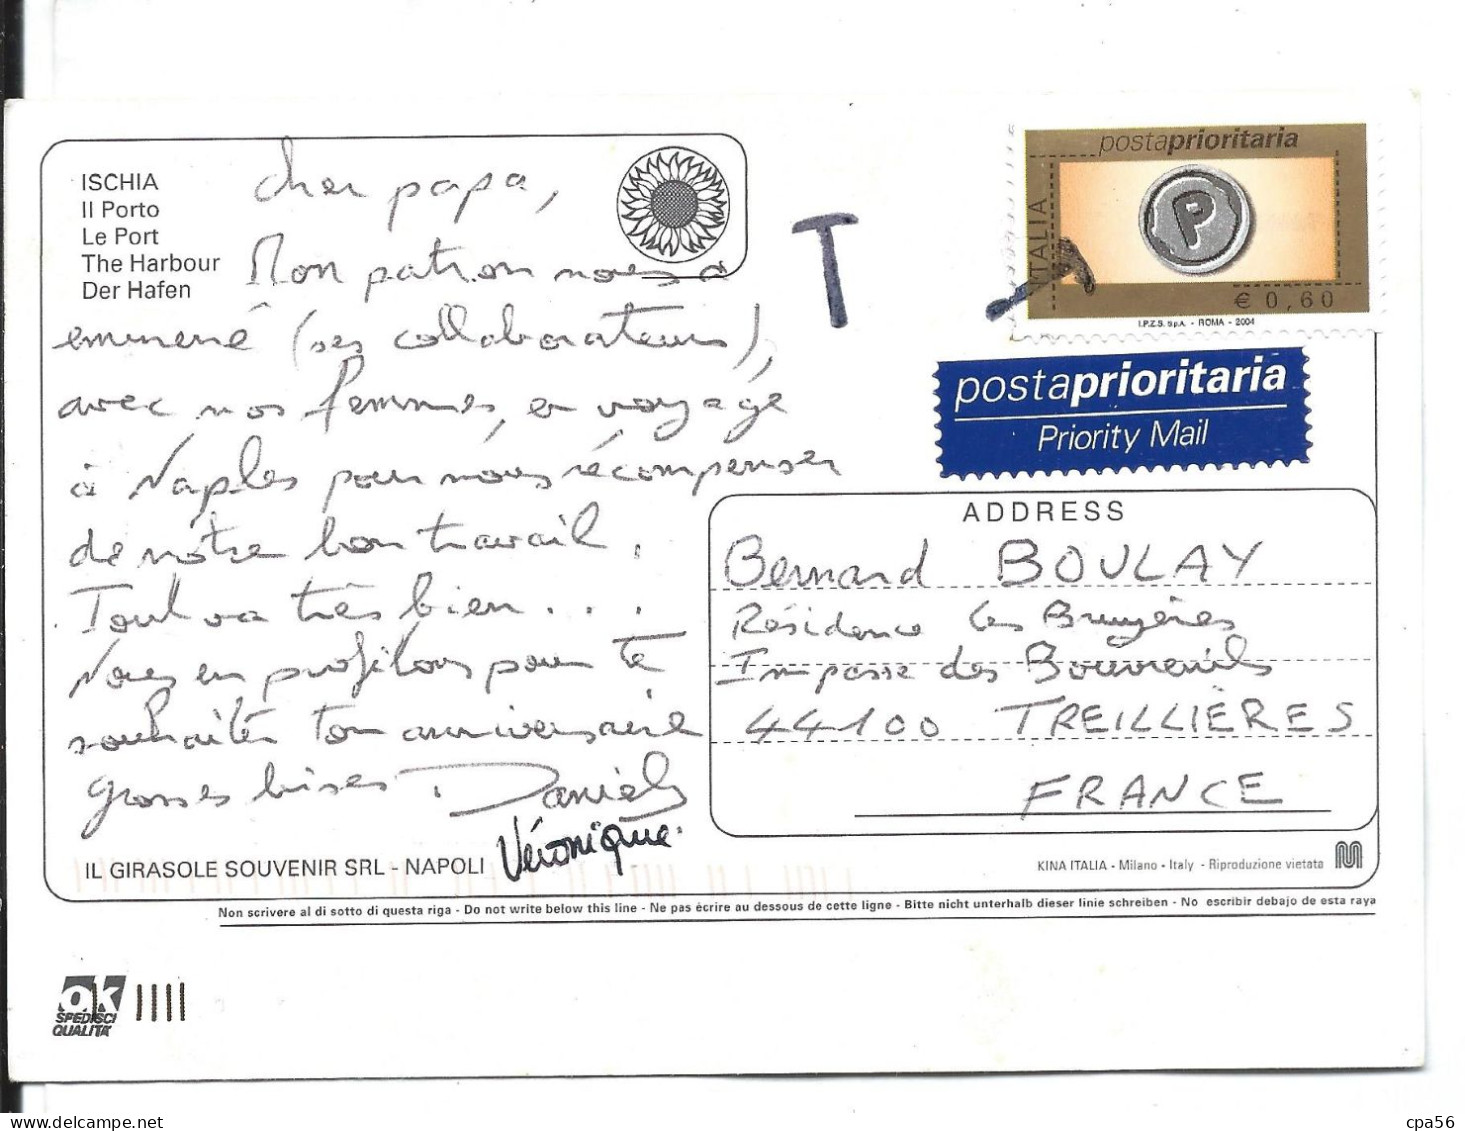 ISCHIA
Il Porto
Le Port
The Harbour
Der Hafen
cher papa,
Mon patron nous a
emmené (ses collaborateurs),
avec nos femmes, en voyage
à Naples pour nous récompenser
de notre bon travail.
Tout va très bien...
Nous en profitons pour te
souhaiter ton anniversaire
grosses bises. Daniel
Véronique.
IL GIRASOLE SOUVENIR SRL - NAPOLI
T
postaprioritaria
ITALIA
P
€ 0,60
I.P.Z.S. S.p.A. - ROMA - 2004
postaprioritaria
Priority Mail
ADDRESS
Bernard BOULAY
Résidence Les Bruyères
Impasse des Bouvreuils
44100 TREILLIÈRES
FRANCE
KINA ITALIA - Milano - Italy - Riproduzione vietata
Non scrivere al di sotto di questa riga - Do not write below this line - Ne pas écrire au dessous de cette ligne - Bitte nicht unterhalb dieser linie schreiben - No escribir debajo de esta raya
ok
SPEDISCI
QUALITA'
cpa56